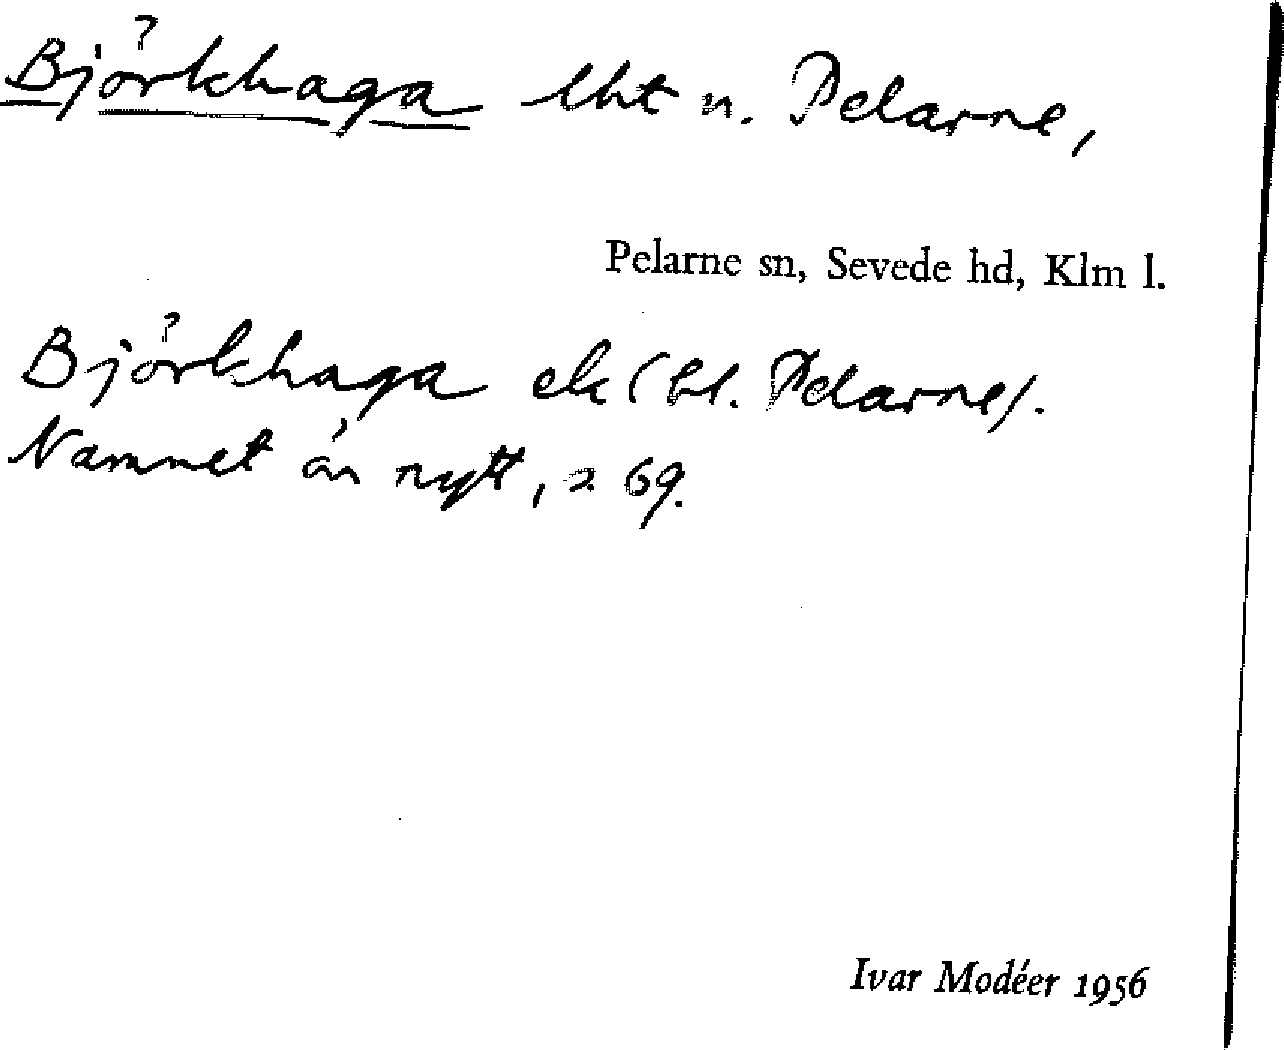 Björkhaga lht n. Pelarne,
Pelarne sn, Sevede hd, Klm l.
Björkhaga ek (bl. Pelarne).
Namnet är nytt, 2 69.
Ivar Modéer 1956